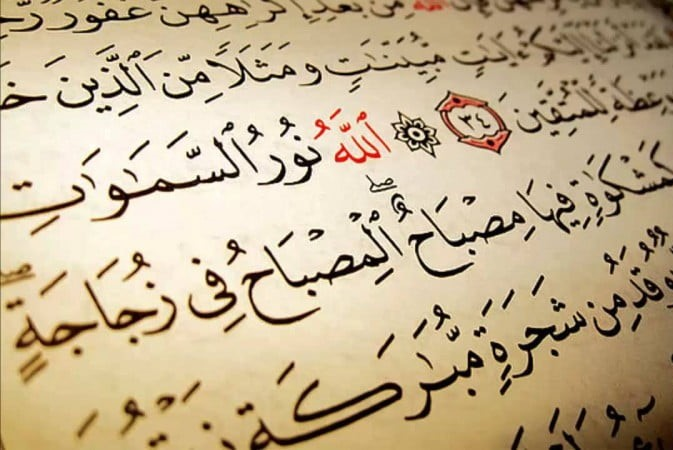 ٱللَّهَ مِنۢ بَعْدِ إِكْرَٰهِهِنَّ غَفُورٌ
إِلَيْكُمْ ءَايَٰتٍ مُّبَيِّنَٰتٍ وَمَثَلًا مِّنَ ٱلَّذِينَ
لِّلْمُتَّقِينَ ٣٤ ۞ ٱللَّهُ نُورُ ٱلسَّمَٰوَٰتِ
كَمِشْكَوٰةٍ فِيهَا مِصْبَاحٌ ۖ ٱلْمِصْبَاحُ فِى زُجَاجَةٍ ۖ
يُوقَدُ مِن شَجَرَةٍ مُّبَٰرَكَةٍ